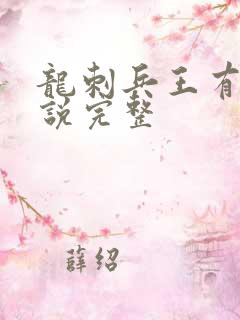 龍刺兵王有
說完整
薛紹